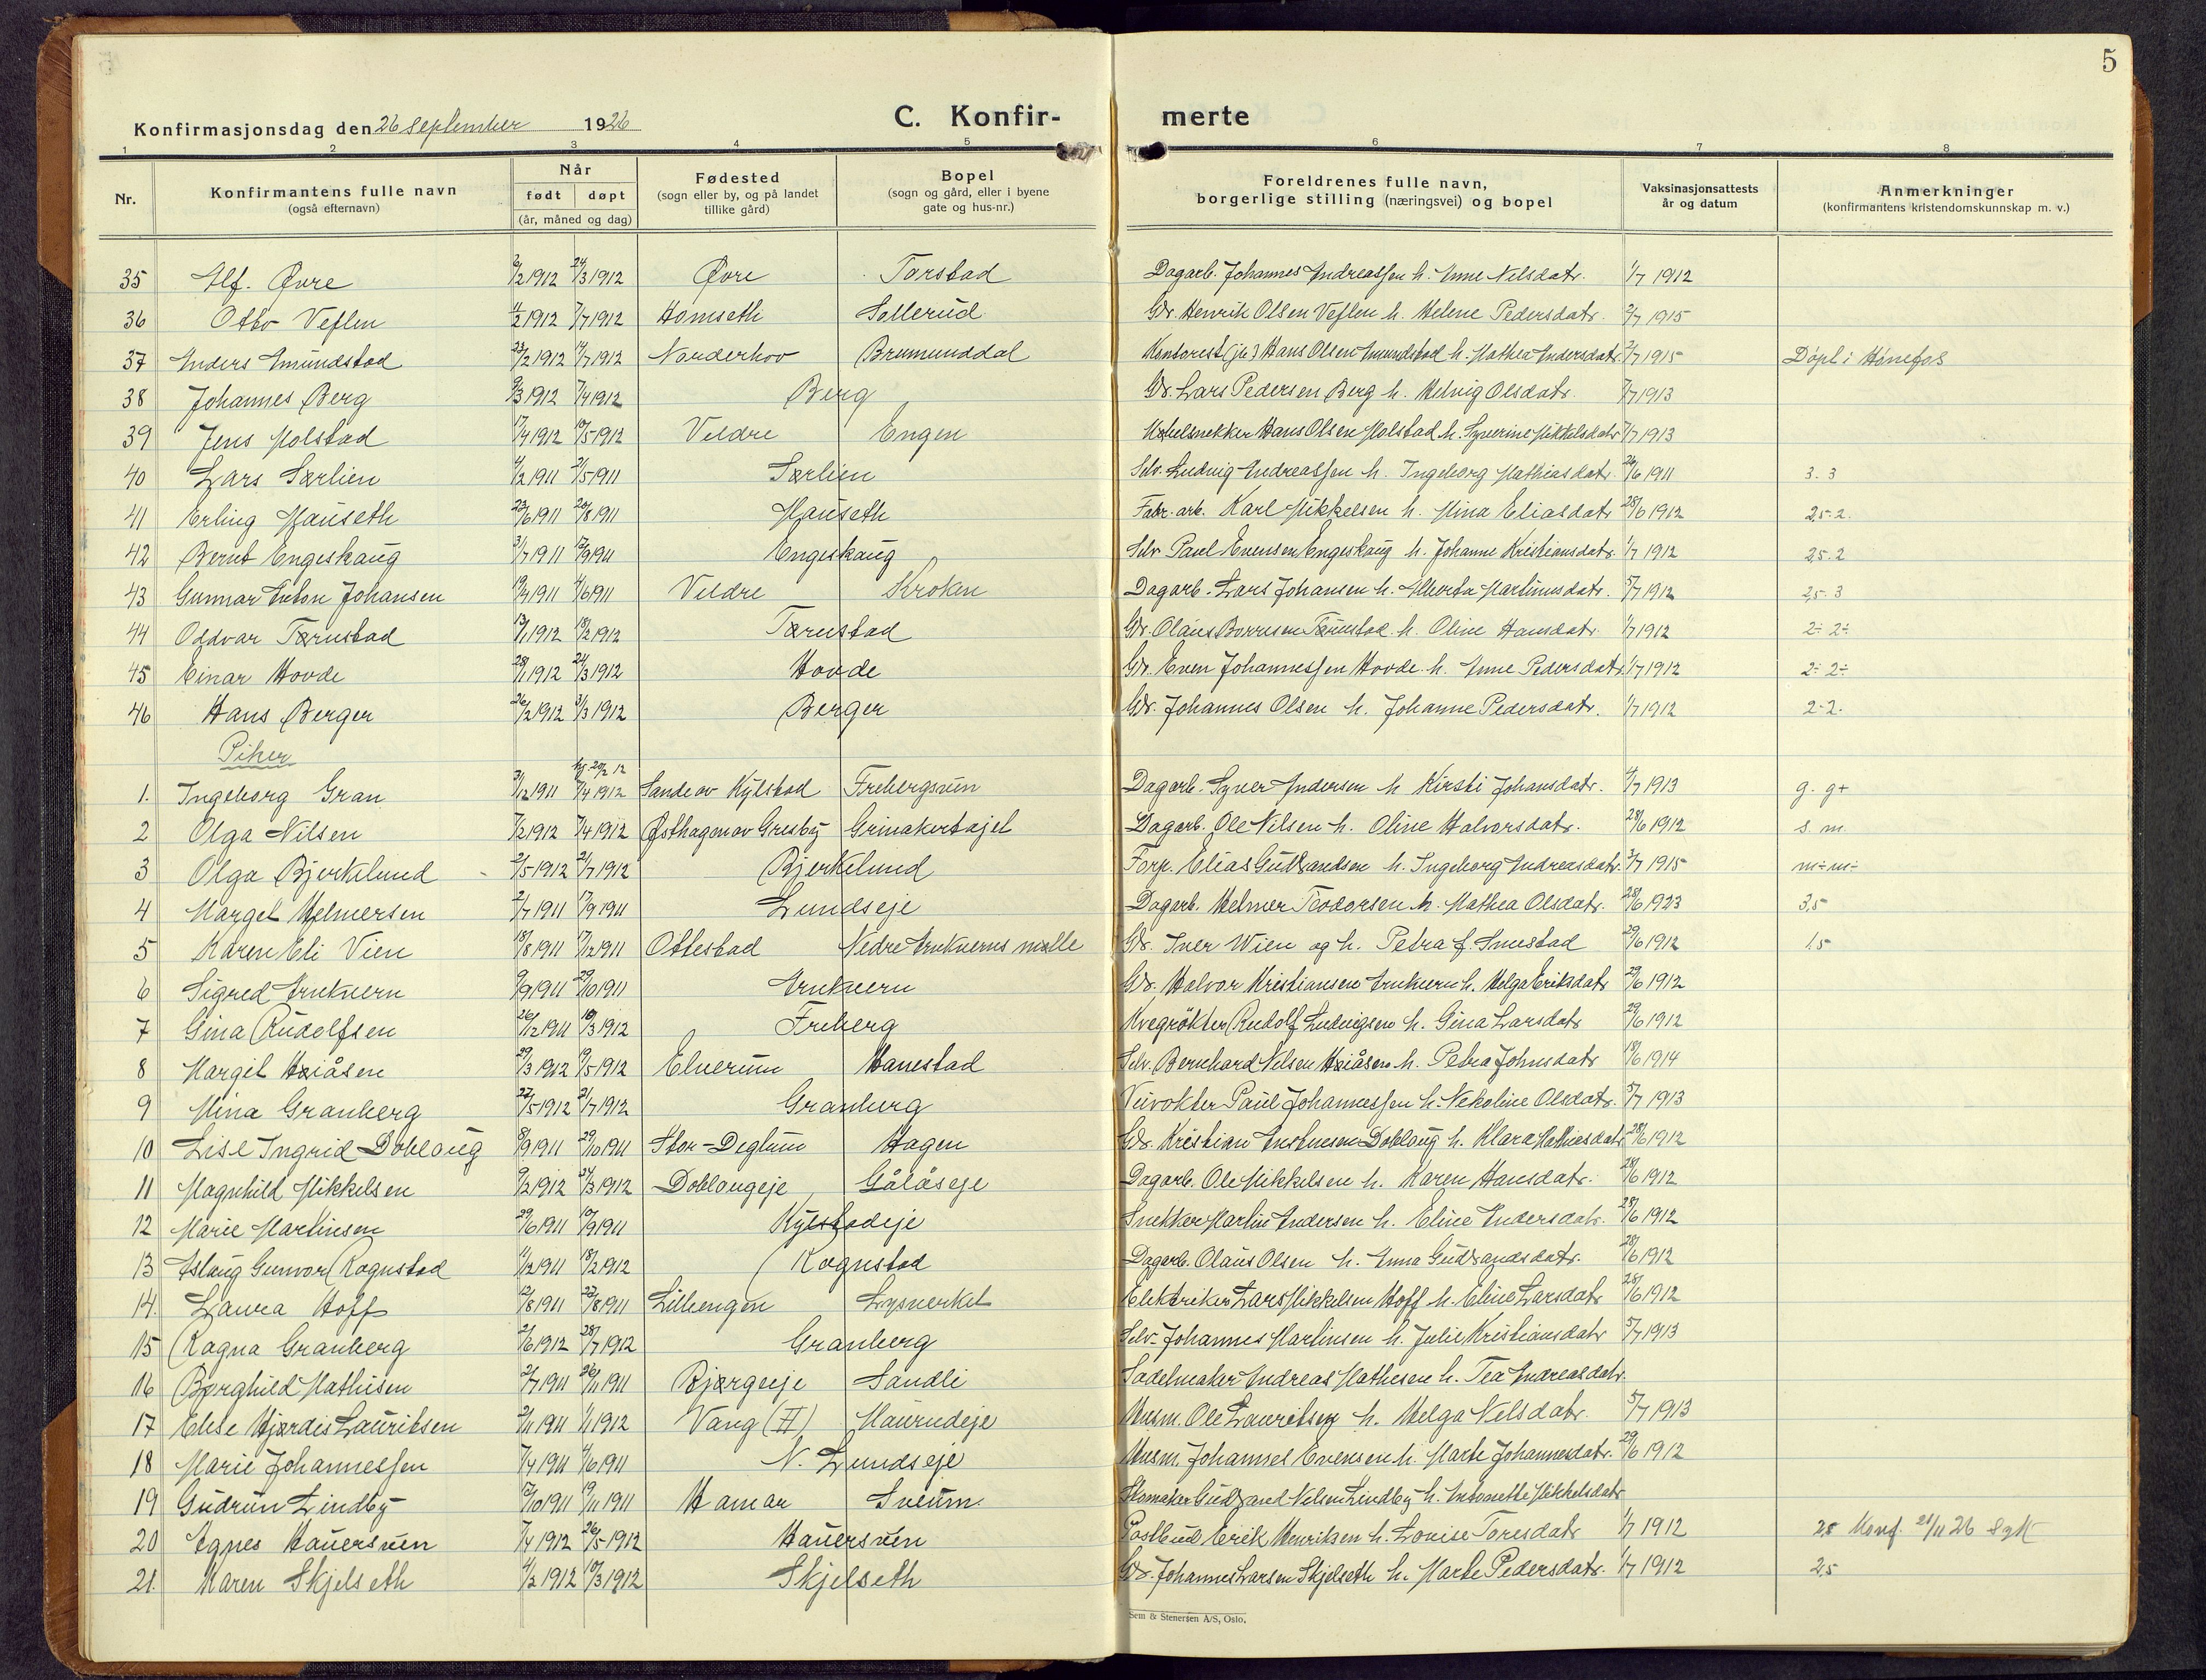 5
Konfirmasjonsdag den 26 September 1926 C. Konfirmerte
1 2 3 4 5 6 7 8
Nr. Konfirmantens fulle navn (også efternavn) Når født døpt (år, måned og dag) Fødested (sogn eller by, og på landet tillike gård) Bopel (sogn og gård, eller i byene gate og hus-nr.) Foreldrenes fulle navn, borgerlige stilling (næringsvei) og bopel Vaksinasjonsattests år og datum Anmerkninger (konfirmantens kristendomskunnskap m. v.)
35 Alf. Øvre 6/2 1912 24/3 1912 Øvre Torstad Dagarb. Johannes Andreassen h. Anne Nilsdatr. 1/7 1912
36 Otto Veflen 4/2 1912 7/7 1912 Homseth Sollerud Gdr. Henrik Olsen Veflen h. Helene Pedersdatr. 2/7 1915
37 Anders Amundstad 23/2 1912 14/7 1912 Norderhov Brumunddal Kontorist (jb) Hans Olsen Amundstad h. Mathea Andersdatr. 2/7 1915 Døpt i Hønefos
38 Johannes Berg 9/3 1912 7/4 1912 Berg Gdr. Lars Pedersen Berg h. Helvig Olsdatr. 7/7 1913
39 Jens Molstad 17/4 1912 19/5 1912 Veldre Engen Møbelsnekker Hans Olsen Molstad h. Syverine Mikkelsdatr 7/7 1913
40 Lars Særlien 4/2 1911 21/5 1911 Særlien Selv. Ludvig Andreassen h. Ingeborg Mathiasdatr. 26/6 1911 3. 3
41 Erling Hauseth 23/6 1911 20/8 1911 Hauseth Fabr. arb. Karl Mikkelsen h. Mina Eliasdatr 28/6 1912 2,5-2.
42 Bernt Engeskaug 31/7 1911 17/9 1911 Engeskaug Selv Paul Evensen Engeskaug h. Johanne Kristiansdatr. 1/7 1912 2,5-2
43 Gunnar Anton Johansen 19/4 1911 4/6 1911 Veldre Kroken Dagarb. Lars Johansen h. Alberta Martinusdatr. 5/7 1912 2,5-3
44 Oddvar Tærustad 13/1 1912 18/2 1912 Tærustad Gdr. Olaus Borresen Tærustad h. Oline Hansdatr. 1/7 1912 2÷ 2÷
45 Einar Hovde 28/1 1912 24/3 1912 Hovde Gdr. Even Johannessen Hovde h. Anne Pedersdatr. 1/7 1912 2÷ 2÷
46 Hans Berger 26/2 1912 31/3 1912 Berger Gdr. Johannes Olsen h. Johanne Pedersdatr. 1/7 1912 2-2.
Piker
1. Ingeborg Gran 31/12 1911 hj. 20/2 12 7/4 1912 Sande av Kylstad Frebergsvin Dagarb. Syver Andersen h Kirsti Johansdatr. 4/7 1913 g. g+
2 Olga Nilsen 7/2 1912 7/4 1912 Østhagen av Gresby Grinakertajet Dagarb. Ole Nilsen h. Oline Halvorsdatr. 28/6 1912 s. m.
3 Olga Bjerkelund 2/5 1912 21/7 1912 Bjerkelund Forp. Elias Gudbrandsen h. Ingeborg Andreasdatr. 3/7 1915 m÷m÷
4 Margel Helmersen 2/7 1911 17/9 1911 Lundseje Dagarb. Helmer Teodorsen h. Mathea Olsdatr. 28/6 1923 3,5
5 Karen Eli Vien 18/8 1911 17/12 1911 Ottestad Nedre Arukverns mølle Gdr. Iver Wien og h. Petra f. Imistad 29/6 1912 1,5
6 Sigred Arukvern 9/9 1911 29/10 1911 Arukvern Gdr. Halvor Kristiansen Arukvern h. Helga Eriksdatr 29/6 1912
7 Gina Rudolfsen 26/12 1911 10/3 1912 Freberg Kvegrøkter Rudolf Ludvigsen h. Gina Larsdatr 29/6 1912
8 Margit Høiåsen 29/3 1912 19/5 1912 Elverum Hanestad Selv. Bernhard Nilsen Høiåsen h. Petra Johnsdatr 18/6 1914
9 Mina Granberg 22/5 1912 21/7 1912 Granberg Veivokter Paul Johannessen h. Nekoline Olsdatr. 5/7 1913
10 Lise Ingrid Doblaug 8/9 1911 29/10 1911 Stor-Deglum Hagen Gdr. Kristian Anstensen Doblaug h. Klara Mathiasdatr 28/6 1912
11 Magnhild Mikkelsen 9/2 1912 24/3 1912 Doblaugeje Gålåseje Dagarb. Ole Mikkelsen h. Karen Hansdatr. 28/6 1912
12 Marie Martinsen 29/6 1911 10/9 1911 Kylstadeje Snekker Martin Andersen h. Eline Andersdatr. 28/6 1912
13 Aslaug Gunvor Rognstad 11/12 1911 18/2 1912 Rognstad Dagarb. Olaus Olsen h. Anna Gudbrandsdatr. 28/6 1912
14. Laura Hoff 12/8 1911 22/8 1911 Lillengen Lysverket Elektriker Lars Mikkelsen Hoff h. Eline Larsdatr 28/6 1912
15 Ragna Granberg 2/6 1912 28/7 1912 Granberg Selv. Johannes Martinsen h. Julie Kristiansdatr 5/7 1913
16 Borghild Mathisen 2/7 1911 26/11 1911 Bjørgeeje Sandli Sadelmaker Andreas Mathisen h. Tea Andreasdatr.
17 Else Hjørdis Lauritsen 2/11 1911 1/1 1912 Vang (H) Maurudeje Husm. Ole Lauritsen h. Helga Nilsdatr. 5/7 1913
18 Marie Johannessen 7/4 1911 4/6 1911 N. Lundseje Husm. Johannes Evensen h. Marte Johannesdatr. 29/6 1912
19 Gudrun Lindby 12/10 1911 19/11 1911 Hamar Sveum Skomaker Gudbrand Nilsen Lindby h. Antonette Mikkelsdatr
20 Agnes Hauersven 7/4 1912 26/5 1912 Hauersven Postbud Erik Henriksen h. Louise Toresdatr 1/7 1912 2,5 Konf. 21/11 26 Syk
21. Karen Skjelseth 4/2 1912 10/3 1912 Skjelseth Gdr. Johannes Larsen Skjelseth h. Marte Pedersdatr. 1/7 1912 2,5
Sem & Stenersen A/S, Oslo.